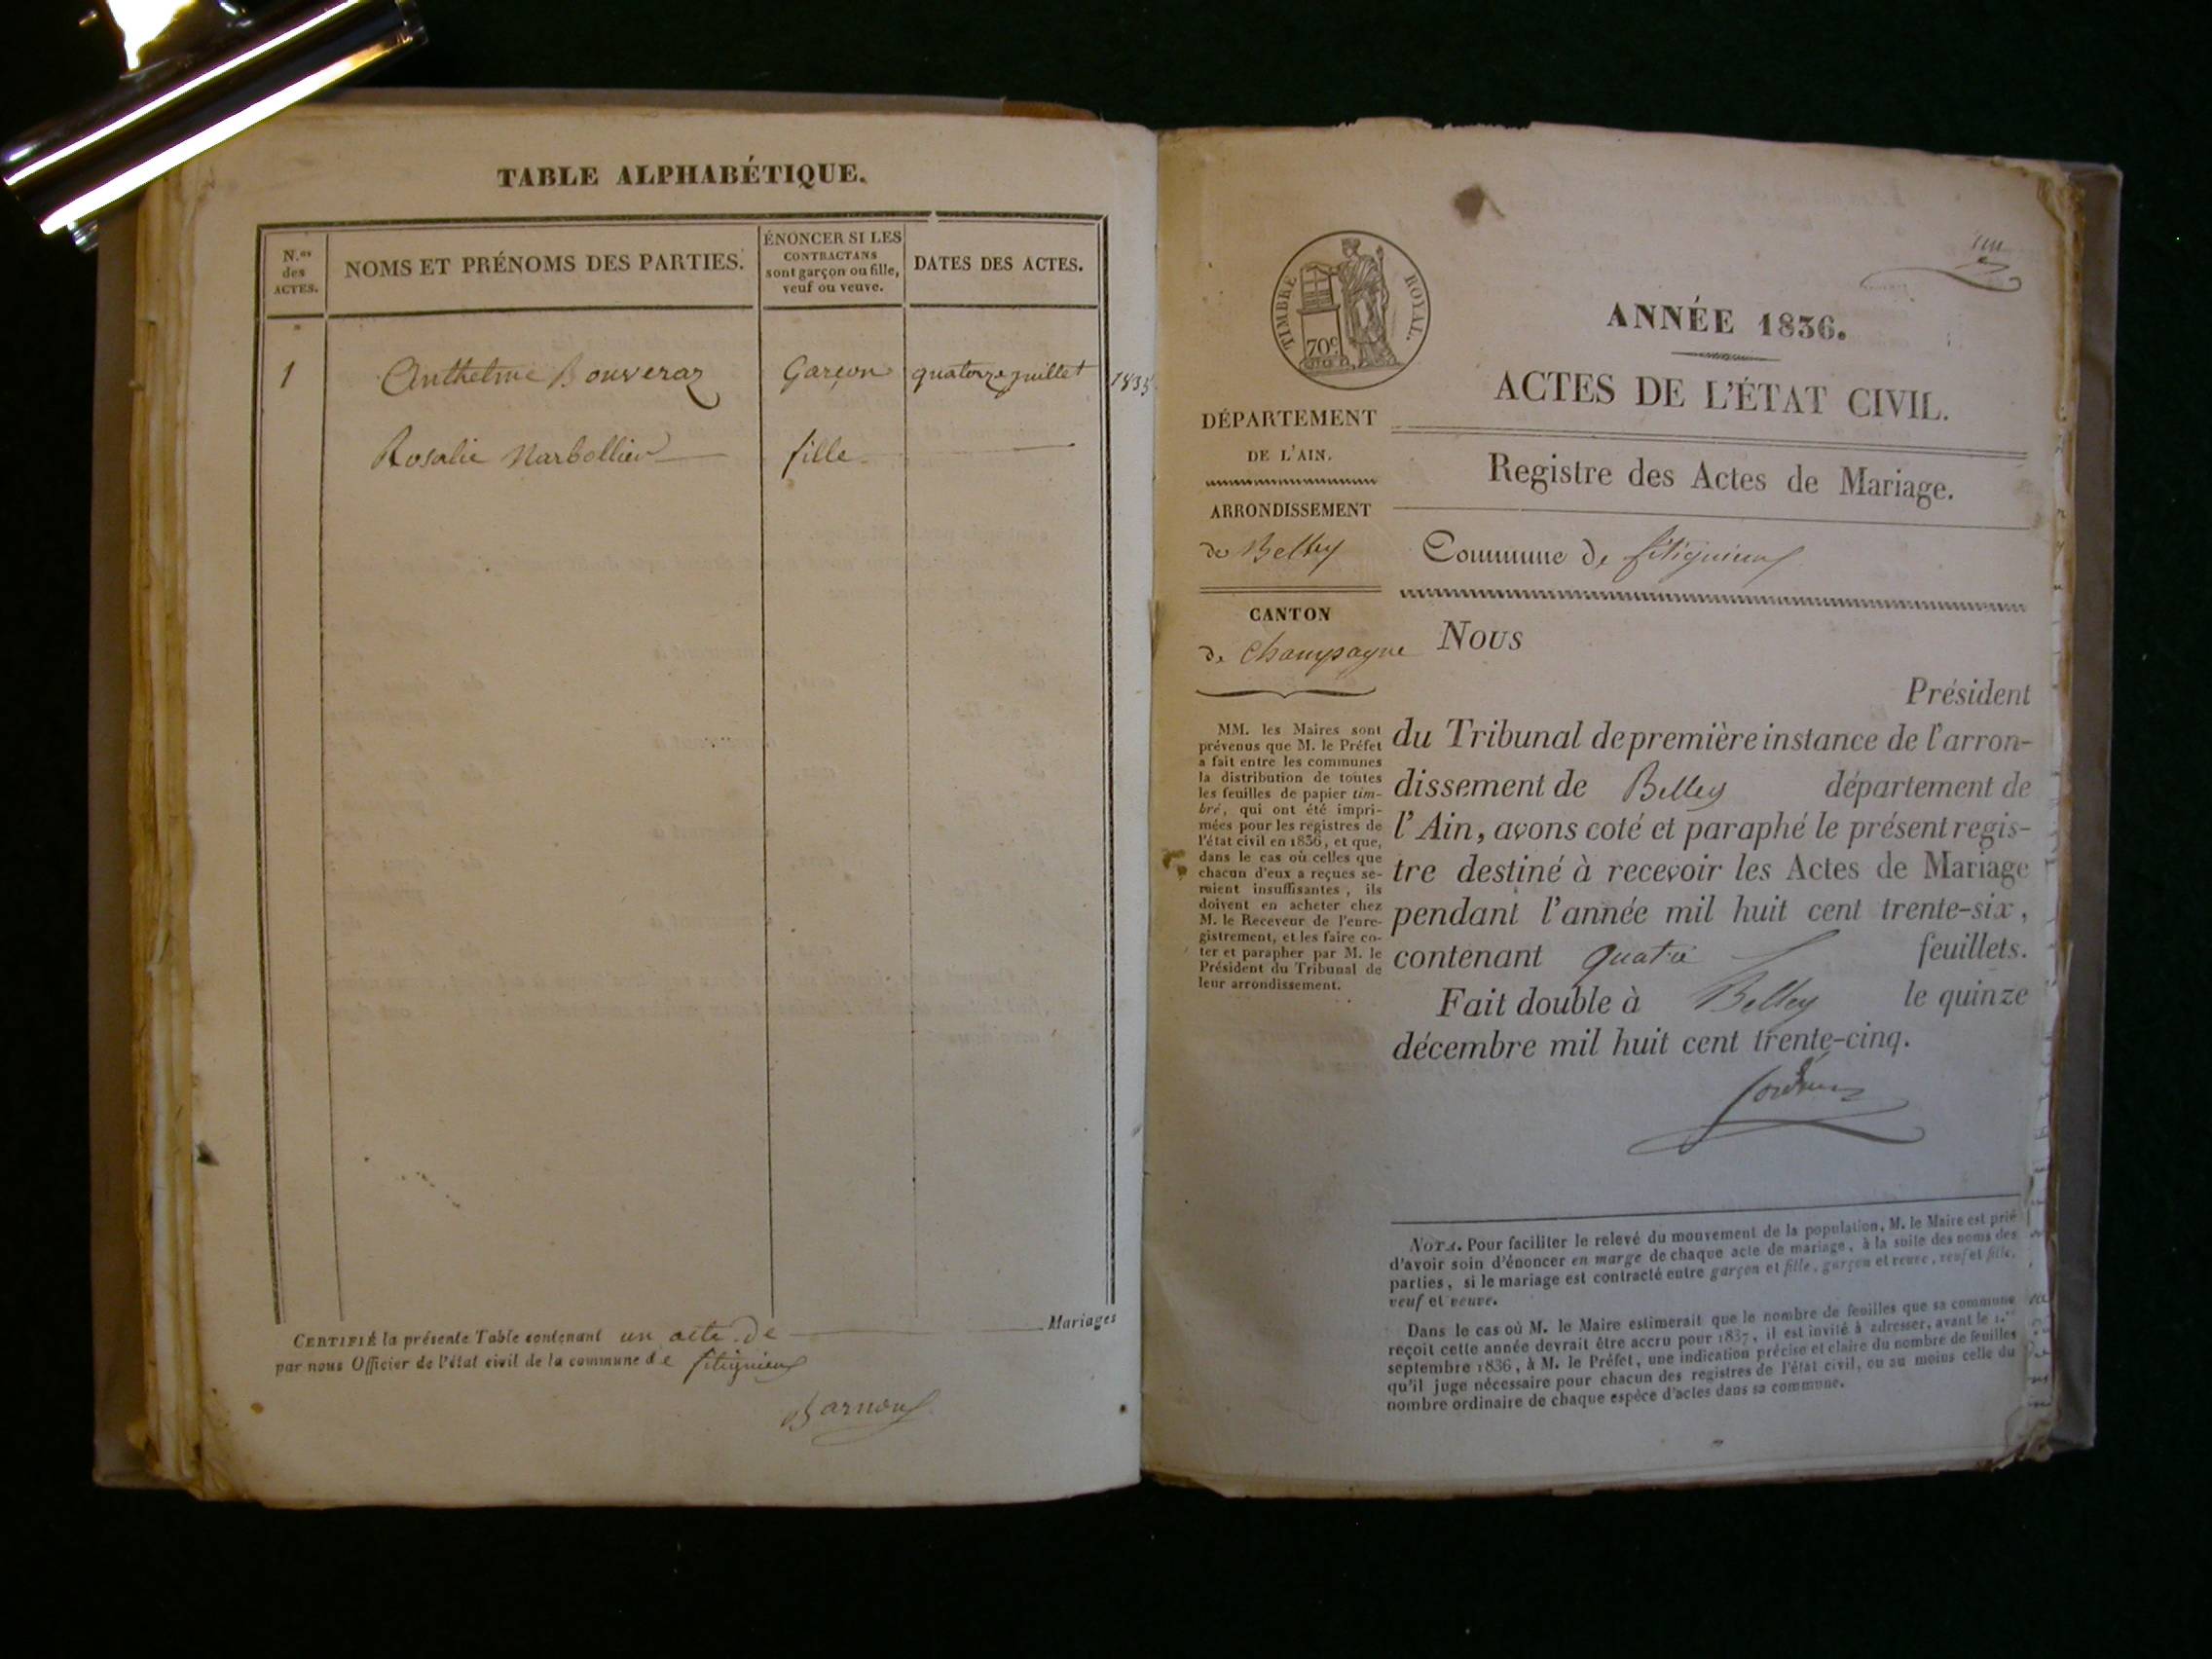 TABLE ALPHABÉTIQUE.
N.os des ACTES.
NOMS ET PRÉNOMS DES PARTIES.
ÉNONCER SI LES
CONTRACTANS
sont garçon ou fille,
veuf ou veuve.
DATES DES ACTES.
1 Anthelme Bouveraz Garçon quatorze juillet 1835
Rosalie Narbollier fille
CERTIFIÉ la présente Table contenant un acte de Mariages
par nous Officier de l'état civil de la commune de fitignieu
Barnoux
TIMBRE ROYAL.
70c
ANNÉE 1836.
ACTES DE L'ÉTAT CIVIL.
Registre des Actes de Mariage.
Commune de fitignieu
DÉPARTEMENT
DE L'AIN.
ARRONDISSEMENT
de Belley
CANTON
de Champagne
MM. les Maires sont
prévenus que M. le Préfet
a fait entre les communes
la distribution de toutes
les feuilles de papier tim-
bré, qui ont été impri-
mées pour les registres de
l'état civil en 1836, et que,
dans le cas où celles que
chacun d'eux a reçues se-
raient insuffisantes, ils
doivent en acheter chez
M. le Receveur de l'enre-
gistrement, et les faire co-
ter et parapher par M. le
Président du Tribunal de
leur arrondissement.
NOUS
Président
du Tribunal de première instance de l'arron-
dissement de Belley département de
l'Ain, avons coté et paraphé le présent regis-
tre destiné à recevoir les Actes de Mariage
pendant l'année mil huit cent trente-six,
contenant quatre feuillets.
Fait double à Belley le quinze
décembre mil huit cent trente-cinq.
NOTA. Pour faciliter le relevé du mouvement de la population, M. le Maire est prié
d'avoir soin d'énoncer en marge de chaque acte de mariage, à la suite des noms des
parties, si le mariage est contracté entre garçon et fille, garçon et veuve, veuf et fille,
veuf et veuve.
Dans le cas où M. le Maire estimerait que le nombre de feuilles que sa commune
reçoit cette année devrait être accru pour 1837, il est invité à adresser, avant le 1.er
septembre 1836, à M. le Préfet, une indication précise et claire du nombre de feuilles
qu'il juge nécessaire pour chacun des registres de l'état civil, ou au moins celle du
nombre ordinaire de chaque espèce d'actes dans sa commune.